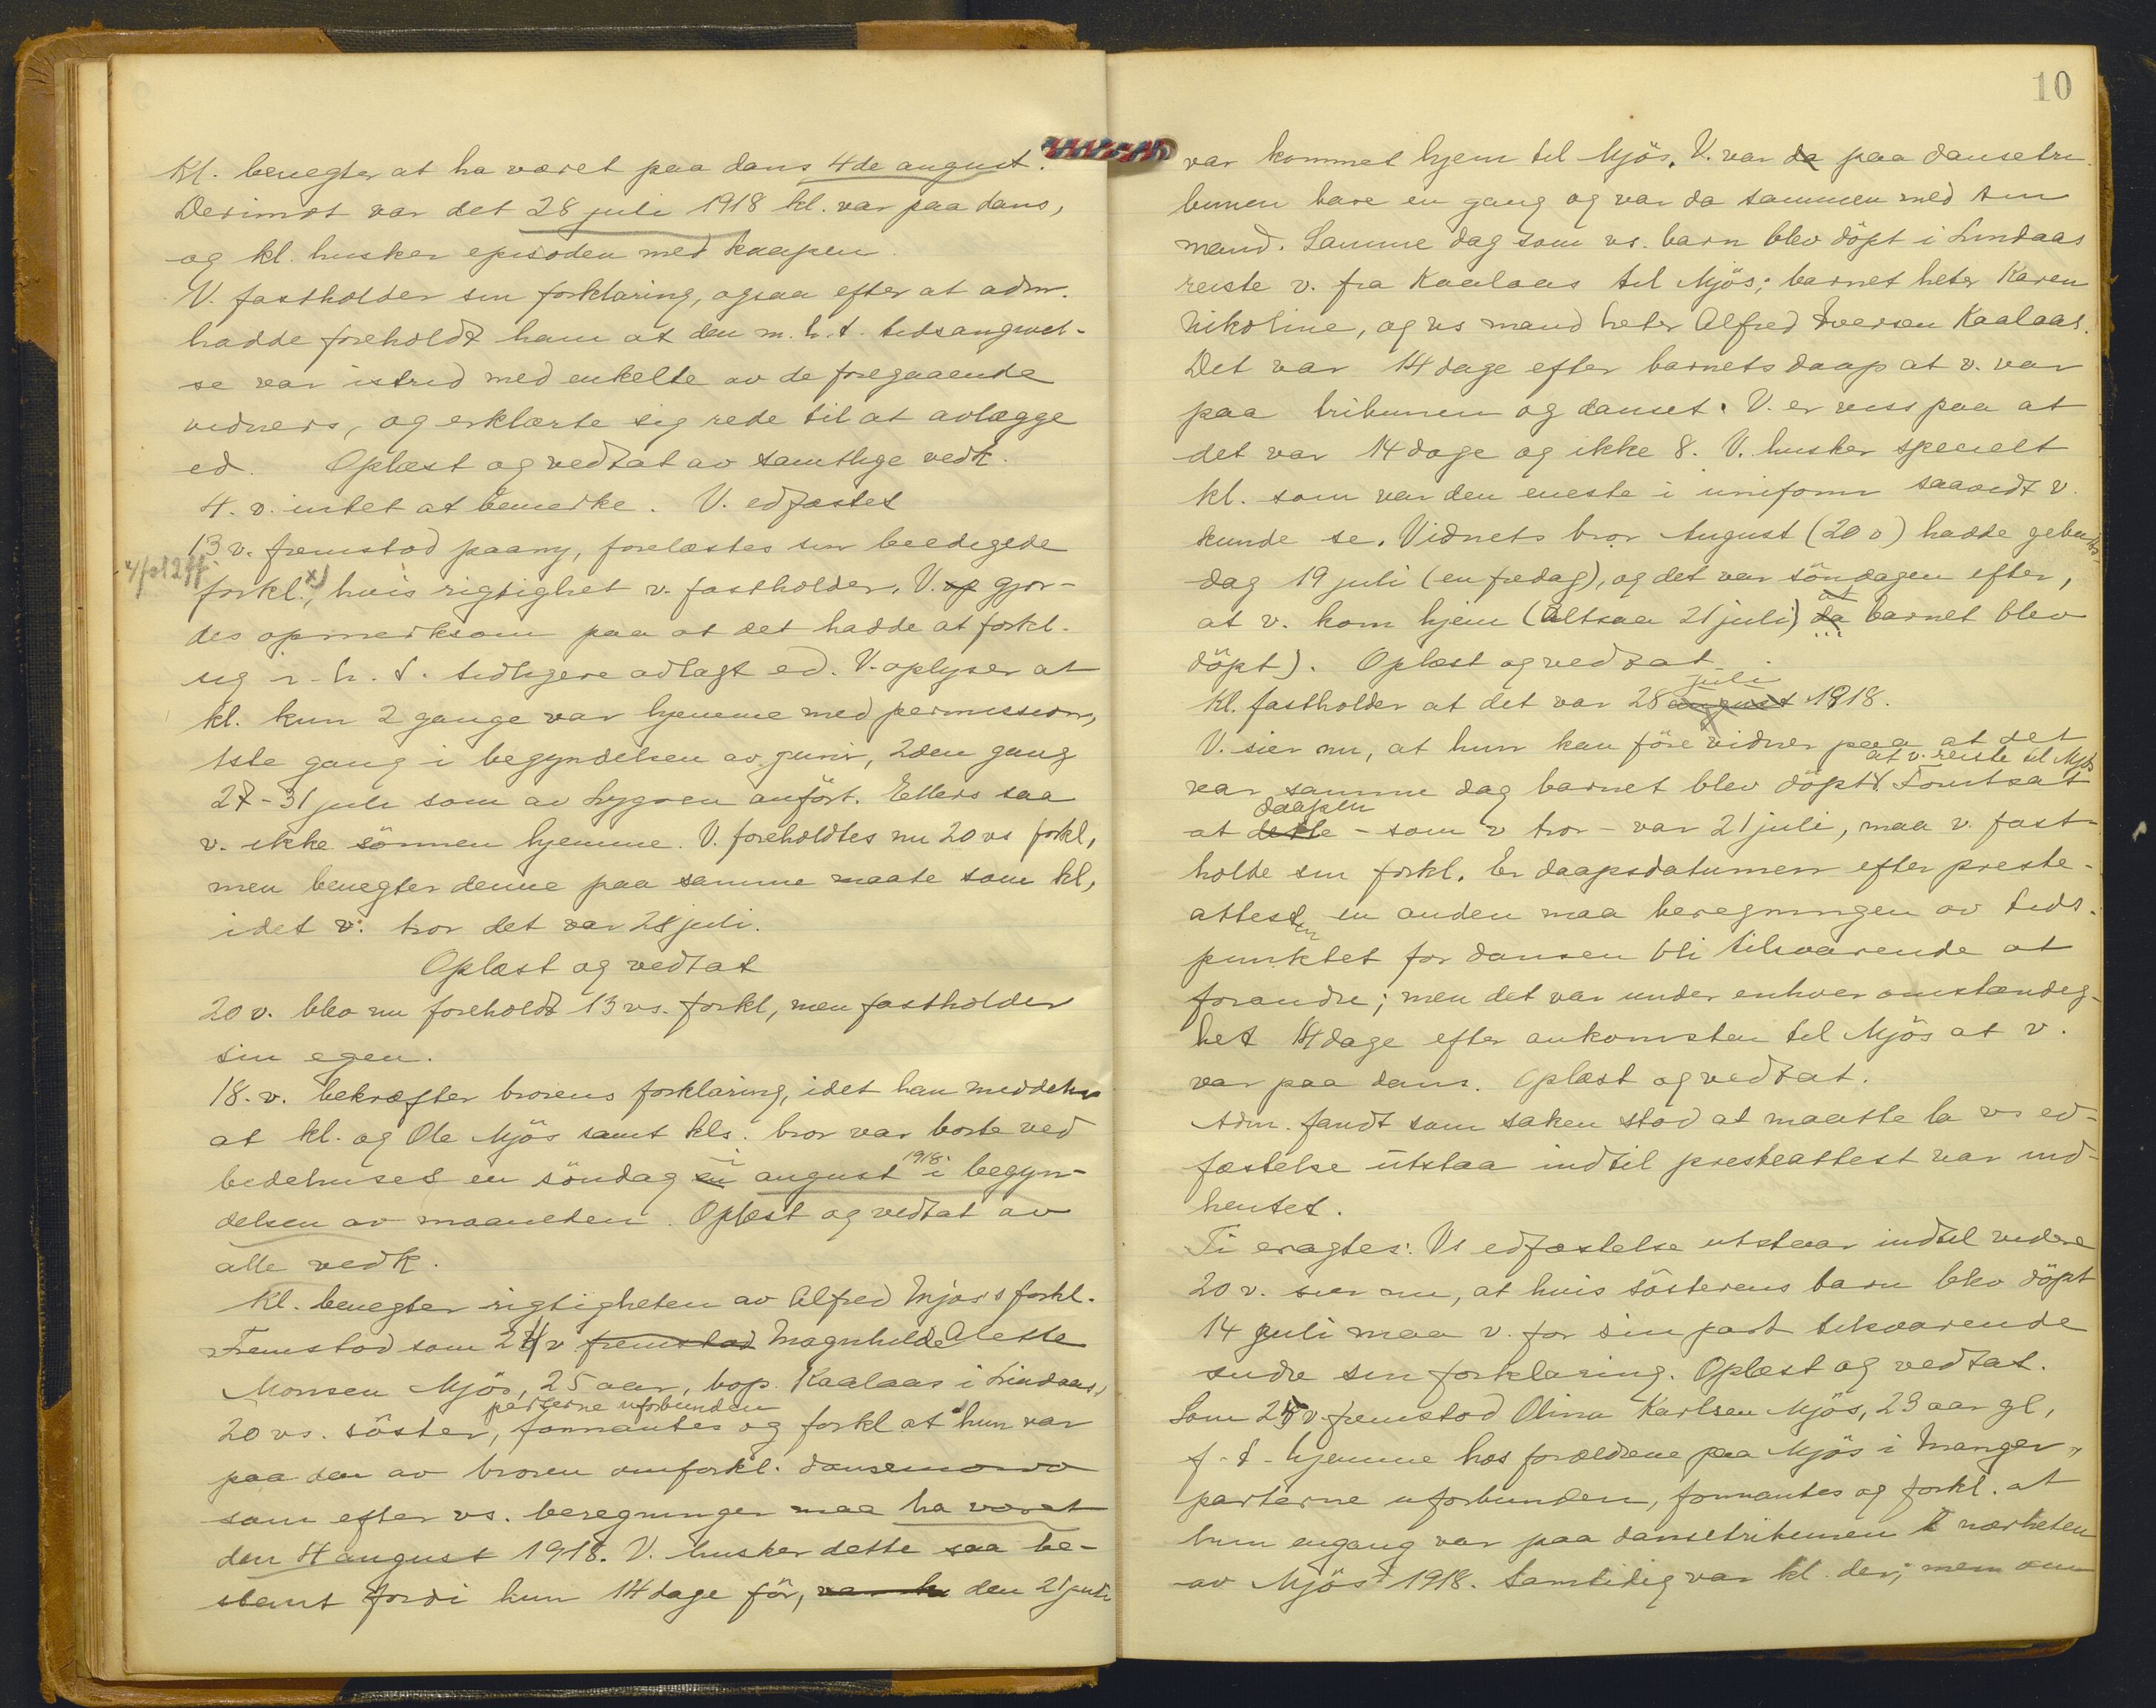 Kl. benegter at ha været paa dans 4de august.
Derimot var det 28 juli 1918 kl. var paa dans,
og kl. husker episoden med kaapen.
V. fastholder sin forklaring, ogsaa efter at adm.
hadde foreholdt ham at den m.h.t. tidsangivel-
se var istrid med enkelte av de foregaaende
vidners, og erklærte sig rede til at avlægge
ed. Oplæst og vedtat av samtlige vedk.
4. v. intet at bemerke. V. edfæstet
13 v. fremstod paany, forelæstes sin beedigede
forkl.,x) hvis rigtighet v. fastholder. V. op gjor-
des opmerksom paa at det hadde at forkl.
sig i.h.t. tidligere avlagt ed. V. oplyser at
kl. kun 2 gange var hjemme med permission,
1ste gang i begyndelsen av juni, 2den gang
27-31 juli som av Lygren anført. Ellers saa
v. ikke sönnen hjemme. V. foreholdtes nu 20 vs forkl,
men benegter denne paa samme maate som kl,
idet v. tror det var 28 juli.
Oplæst og vedtat
20 v. blev nu foreholdt 13 vs. forkl, men fastholder
sin egen.
18. v. bekræfter brorens forklaring, idet han meddeler
at kl. og Ole Mjös samt kls. bror var borte ved
bedehuset en söndag i august 1918 i begyn-
delsen av maaneden. Oplæst og vedtat av
alle vedk.
Kl. benegter rigtigheten av Alfred Mjös's forkl.
Fremstod som 24 v fremstod Magnhilde Alette
Monsen Mjös, 25 aar, bop. Kaalaas i Lindaas,
20 vs. söster, partene uforbunden formantes og forkl at hun var
paa den av broren omforkl. dansemoro
som efter vs. beregninger maa ha været
den 4 august 1918. V. husker dette saa be-
stemt fordi hun 14 dage för, den 21 juli
10
var kommet hjem til Mjös. V. var da paa dansetri-
bunen bare en gang og var da sammen med sin
mand. Samme dag som vs. barn blev döpt i Lindaas
reiste v. fra Kaalaas til Mjös; barnet heter Karen
Nikoline, og vs mand heter Alfred Iversen Kaalaas.
Det var 14 dage efter barnets daap at v. var
paa tribunen og danset. V. er viss paa at
det var 14 dage og ikke 8. V. husker specielt
kl. som var den eneste i uniform saavidt v.
kunde se. Vidnets bror August (20 v) hadde geburts-
dag 19 juli (en fredag), og det var söndagen efter,
at v. kom hjem (altsaa 21 juli) at da barnet blev
döpt). Oplæst og vedtat.
Kl. fastholder at det var 28 juli august 1918.
V. sier nu, at hun kan före vidner paa at det
var samme dag barnet blev döpt at v. reiste til Mjös. Forutsat
at daapen dette - som v tror - var 21 juli, maa v. fast-
holde sin forkl. Er daapsdatumen efter preste-
attesten en anden maa beregningen av tids-
punktet for dansen bli tilsvarende at
forandre; men det var under enhver omstændig-
het 14 dage efter ankomsten til Mjös at v.
var paa dans. Oplæst og vedtat.
Adm. fandt som saken stod at maatte la vs ed-
fæstelse utstaa indtil presteattest var ind-
hentet.
Ti eragtes: Vs edfæstelse utstaar indtil videre
20 v. sier nu, at hvis sösterens barn blev döpt
14 juli maa v. for sin part tilsvarende
endre sin forklaring. Oplæst og vedtat.
Som 25 v. fremstod Olina Karlsen Mjös, 23 aar gl,
f.t. hjemme hos forældrene paa Mjös i Manger,
parterne uforbunden, formantes og forkl. at
hun engang var paa dansetribunen i nærheten
av Mjös 1918. Samtidig var kl. der; men om